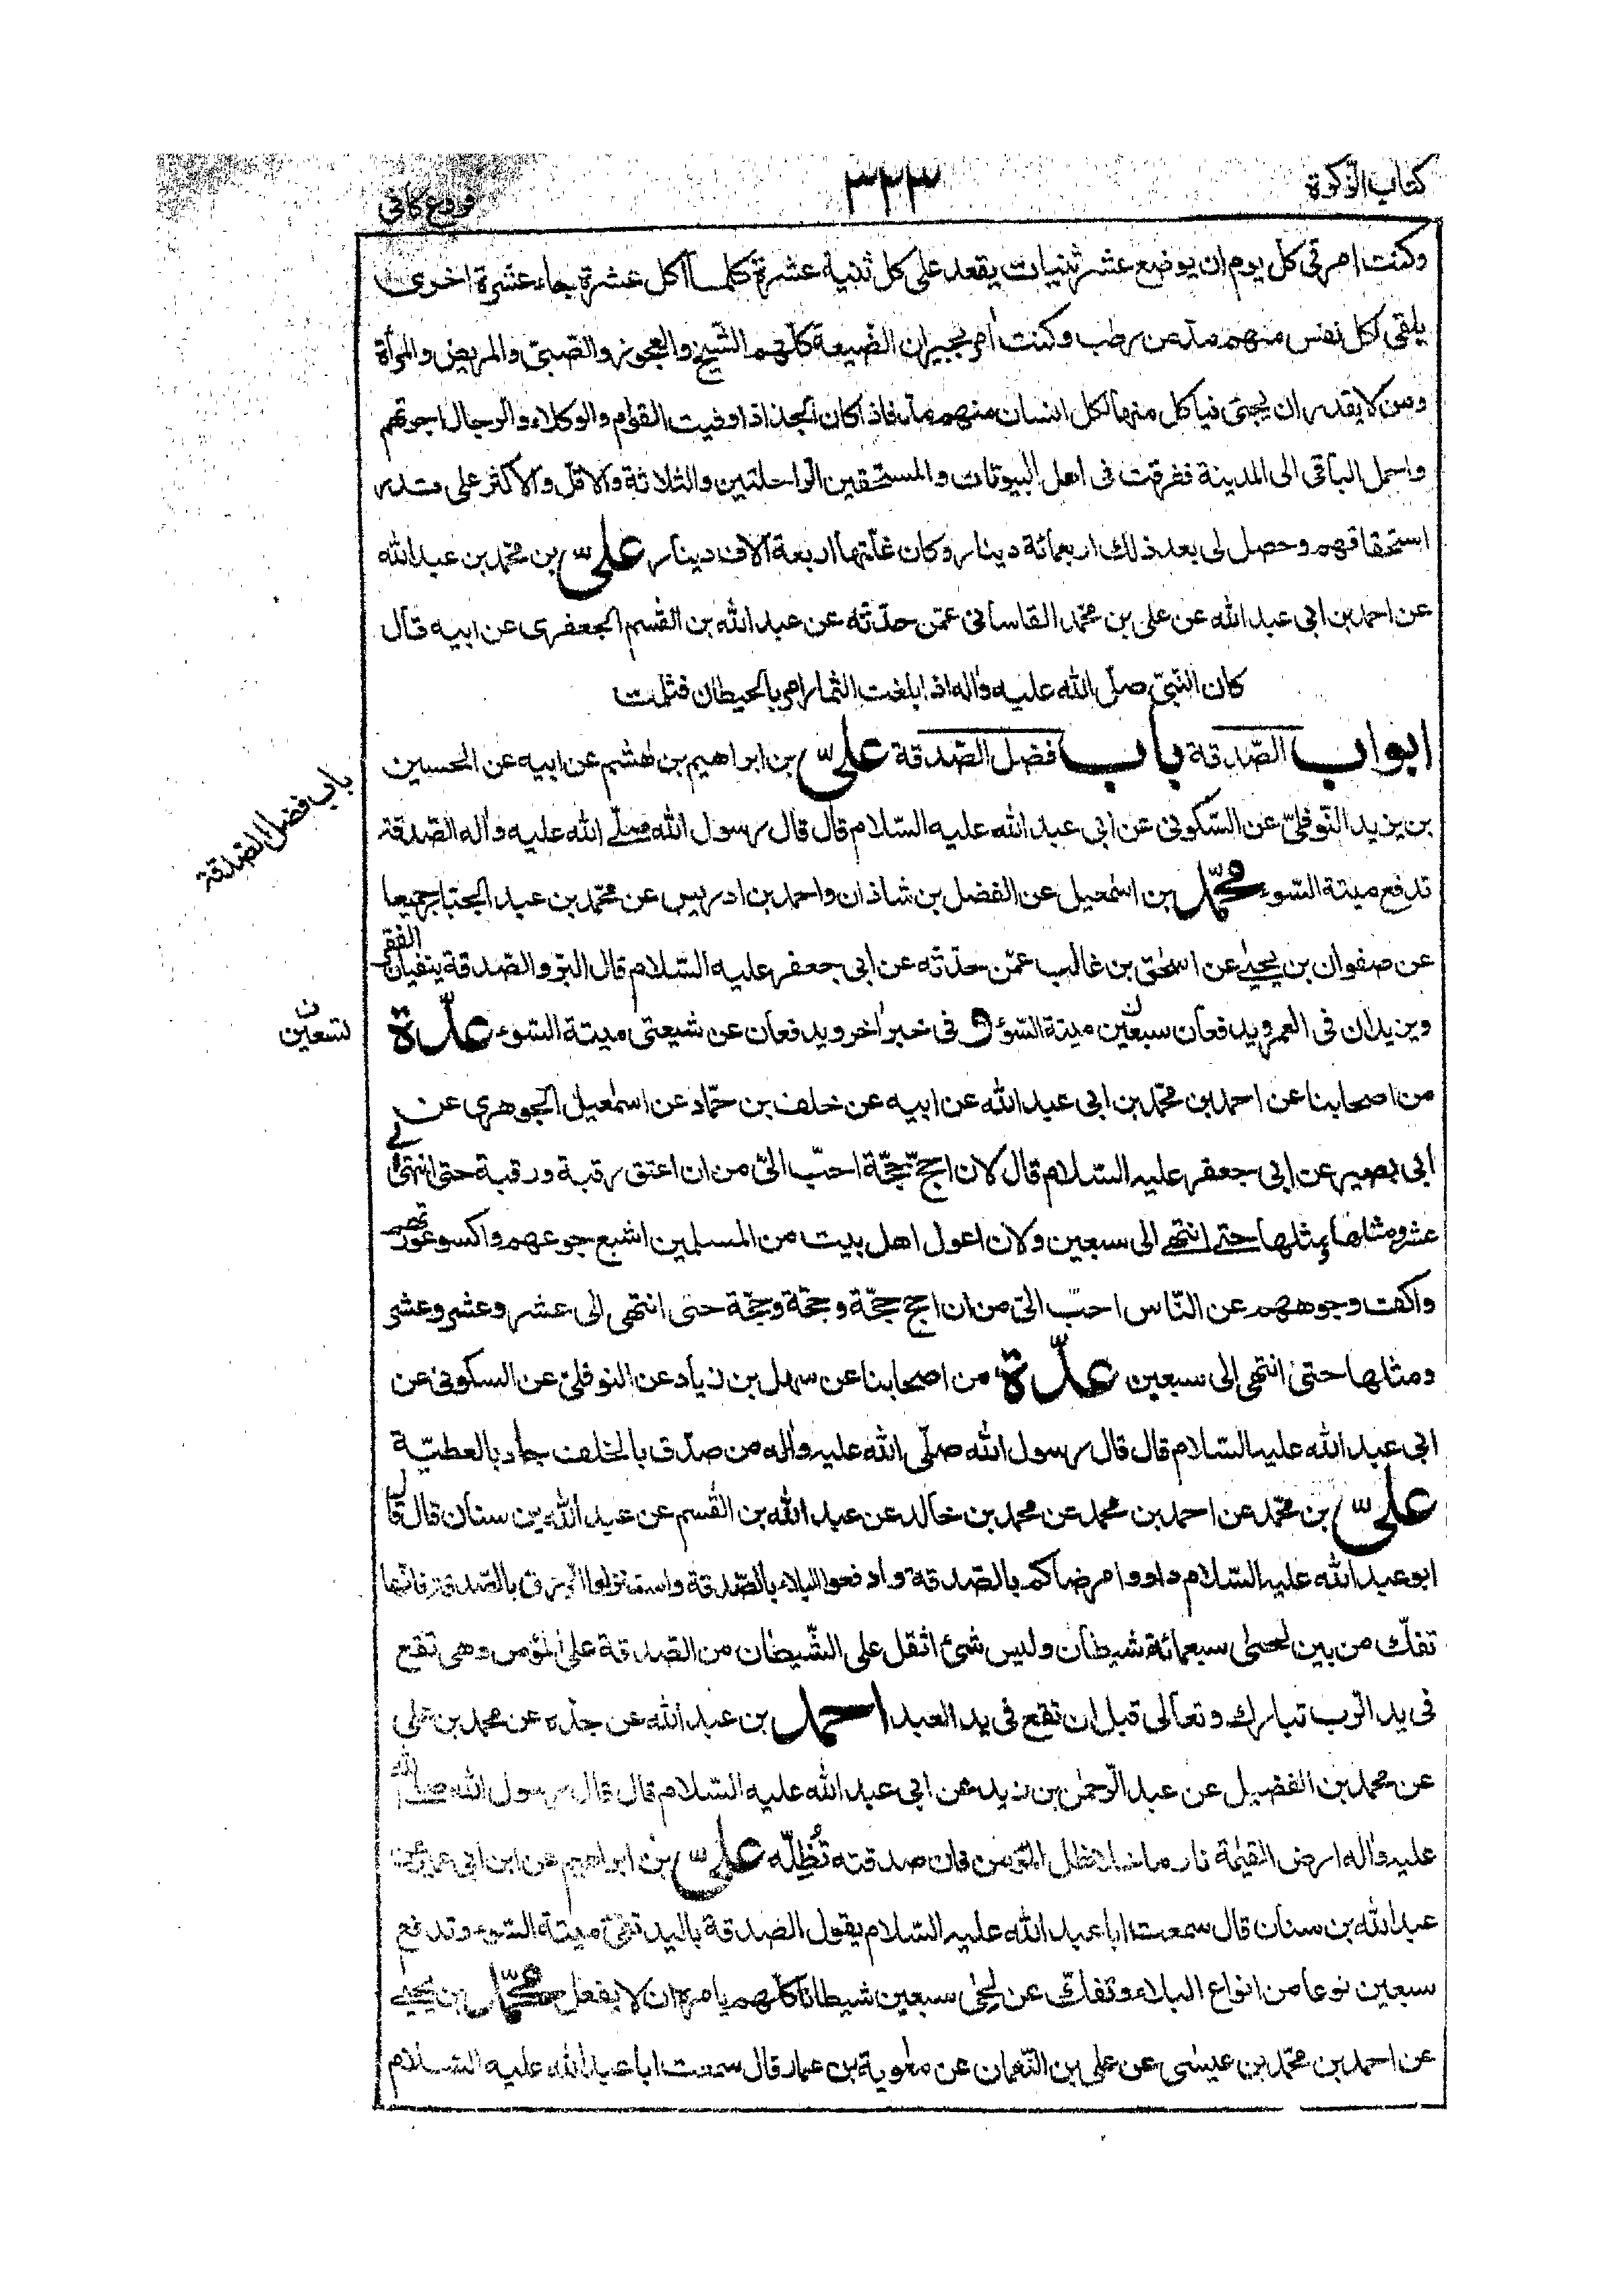 كتاب الزكوة
٣٢٣
فروع كافي
وكنت امر في كل يوم ان يوضع عشر ثبنيات يقعد على كل ثبنية عشرة كلما اكل عشرة جاء عشرة اخرى
يلقى لكل نفس منهم مد من رطب وكنت امر لجيران الضيعة كلهم الشيخ والعجوز والصبيّ والمريض والمرأة
ومن لا يقدر ان يجئ فياكل منها لكل انسان منهم مد فاذا كان الجذاذ اوفيت القوّام والوكلاء والرجال اجرتهم
واحمل الباقي الى المدينة ففرقت في اهل البيوتات والمستحقين الراحلتين والثلاثة والاقل والاكثر على قدر
استحقاقهم وحصل لي بعد ذلك اربعمائة دينار وكان غلّتها اربعة آلاف دينار عليّ بن محمّد بن عبد الله
عن احمد بن ابي عبد الله عن علي بن محمّد القاساني عمّن حدّثه عن عبد الله بن القسم الجعفري عن ابيه قال
كان النبيّ صلّى الله عليه وآله اذا بلغت الثمار امر بالحيطان فثلمت
ابواب الصّدقة باب فضل الصّدقة عليّ بن ابراهيم بن هشم عن ابيه عن الحسين
باب فضل الصّدقة
بن يزيد النّوفليّ عن السّكوني عن ابي عبد الله عليه السّلام قال قال رسول الله صلّى الله عليه وآله الصّدقة
تدفع ميتة السّوء محمّد بن اسمعيل عن الفضل بن شاذان واحمد بن ادريس عن محمّد بن عبد الجبّار جميعا
عن صفوان بن يحيى عن اسحق بن غالب عمّن حدّثه عن ابي جعفر عليه السّلام قال البرّ والصّدقة ينفيان الفقر
ويزيدان في العمر ويدفعان سبعين ميتة السّوء و في خبر آخر ويدفعان عن شيعتي ميتة السّوء عدّة
ن
تسعين
من اصحابنا عن احمد بن محمّد بن ابي عبد الله عن ابيه عن خلف بن حمّاد عن اسمعيل الجوهري عن
ابي بصير عن ابي جعفر عليه السّلام قال لان احجّ حجّة احبّ اليّ من ان اعتق رقبة ورقبة حتى انتهى الى
عشر ومثلها ومثلها حتى انتهى الى سبعين ولان اعول اهل بيت من المسلمين اشبع جوعهم واكسو عورتهم
واكفّ وجوههم عن النّاس احبّ اليّ من ان احج حجّة وحجّة وحجّة حتى انتهى الى عشر وعشر وعشر
ومثلها حتى انتهى الى سبعين عدّة من اصحابنا عن سهل بن زياد عن النوفليّ عن السكوني عن
ابي عبد الله عليه السّلام قال قال رسول الله صلّى الله عليه وآله من صدّق بالخلف جاد بالعطيّة
عليّ بن محمّد عن احمد بن محمد عن محمد بن خالد عن عبد الله بن القسم عن عبد الله بن سنان قال قال
ابو عبد الله عليه السّلام داووا مرضاكم بالصّدقة وادفعوا البلاء بالصّدقة واستنزلوا الرزق بالصّدقة فانّها
تفكّ من بين لحيى سبعمائة شيطان وليس شئ اثقل على الشّيطان من الصدقة على المؤمن وهي تقع
في يد الرّب تبارك وتعالى قبل ان تقع في يد العبد احمد بن عبد الله عن جدّه عن محمد بن علي
عن محمد بن الفضيل عن عبد الرّحمن بن زيد عن ابي عبد الله عليه السّلام قال قال رسول الله صلّى الله
عليه وآله ارض القيمة نار ما خلا ظلّ المؤمن فان صدقته تُظِلّه عليّ بن ابراهيم عن ابن ابي عمير عن
عبد الله بن سنان قال سمعت ابا عبد الله عليه السّلام يقول الصّدقة باليد تقي ميتة السّوء وتدفع
سبعين نوعا من انواع البلاء وتفكّ عن لحيى سبعين شيطانا كلّهم يامره ان لا يفعل محمّد بن يحيى
عن احمد بن محمّد بن عيسى عن علي بن النّعمان عن معوية بن عمار قال سمعت ابا عبد الله عليه السّلام